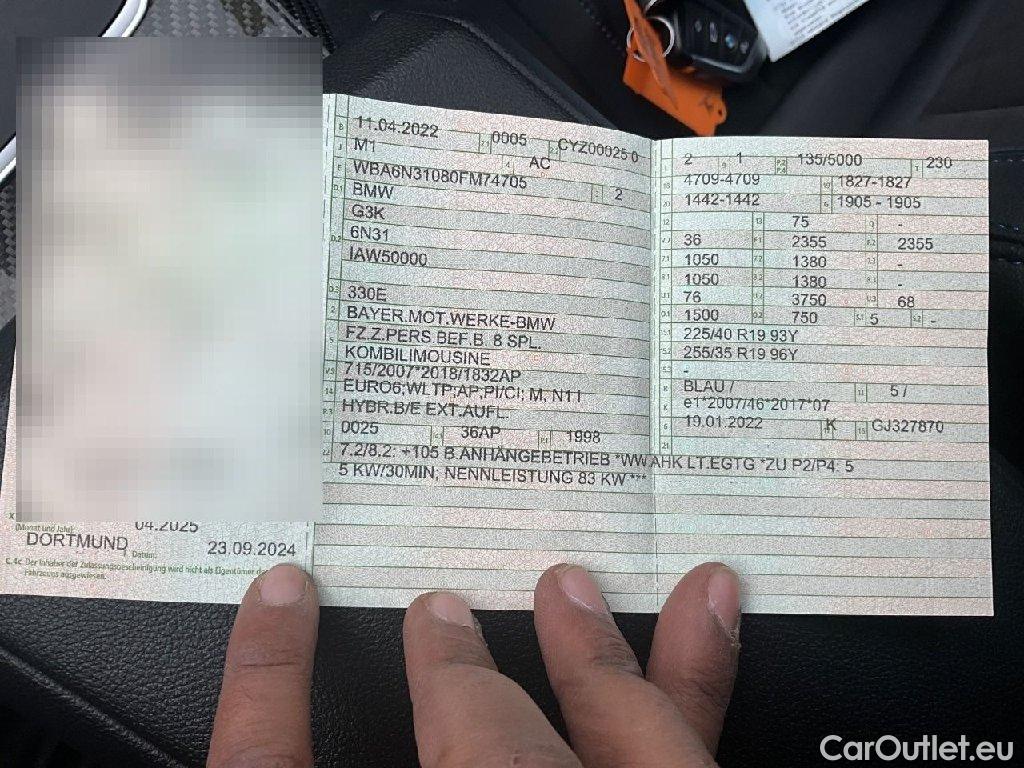 B 11.04.2022 2.1 0005 2.2 CYZ00025 0
J M1 4 AC
E WBA6N31080FM74705 3 2
D.1 BMW
G3K
D.2 6N31
IAW50000
D.3 330E
2 BAYER.MOT.WERKE-BMW
5 FZ.Z.PERS.BEF.B. 8 SPL.
KOMBILIMOUSINE
V.9 715/2007*2018/1832AP
14 EURO6;WLTP;AP;PI/CI; M, N1 I
P.3 HYBR.B/E EXT.AUFL.
10 0025 14.1 36AP P.1 1998
22 7.2/8.2: +105 B.ANHÄNGEBETRIEB *WW AHK LT.EGTG *ZU P2/P4: 5
5 KW/30MIN; NENNLEISTUNG 83 KW ***
L 2 9 1 P.2 P.4 135/5000 T 230
18 4709-4709 19 1827-1827
20 1442-1442 G 1905 - 1905
12 - 13 75 Q -
V.7 36 F.1 2355 F.2 2355
7.1 1050 7.2 1380 7.3 -
8.1 1050 8.2 1380 8.3 -
U.1 76 U.2 3750 U.3 68
O.1 1500 O.2 750 S.1 5 S.2 -
15.1 225/40 R19 93Y
15.2 255/35 R19 96Y
15.3 -
R BLAU / 11 5 /
K e1*2007/46*2017*07
6 19.01.2022 17 K 16 GJ327870
21
X
(Monat und Jahr)
04.2025
DORTMUND
Datum: 23.09.2024
C.4c Der Inhaber der Zulassungsbescheinigung wird nicht als Eigentümer des
Fahrzeugs ausgewiesen.
CarOutlet.eu